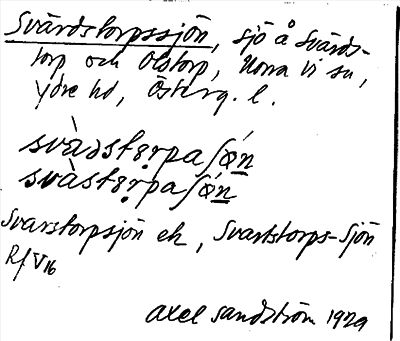 Svärdstorpssjön, sjö å Svärds-
torp och Olstorp, Norra Vi sn,
Ydre hd, Österg. l.
svàdstơrpaʃǿn
svàstơrpaʃǿn
Svarstorpsjön ek, Svartstorps-Sjön
Rf V 16
Axel Sandström 1929